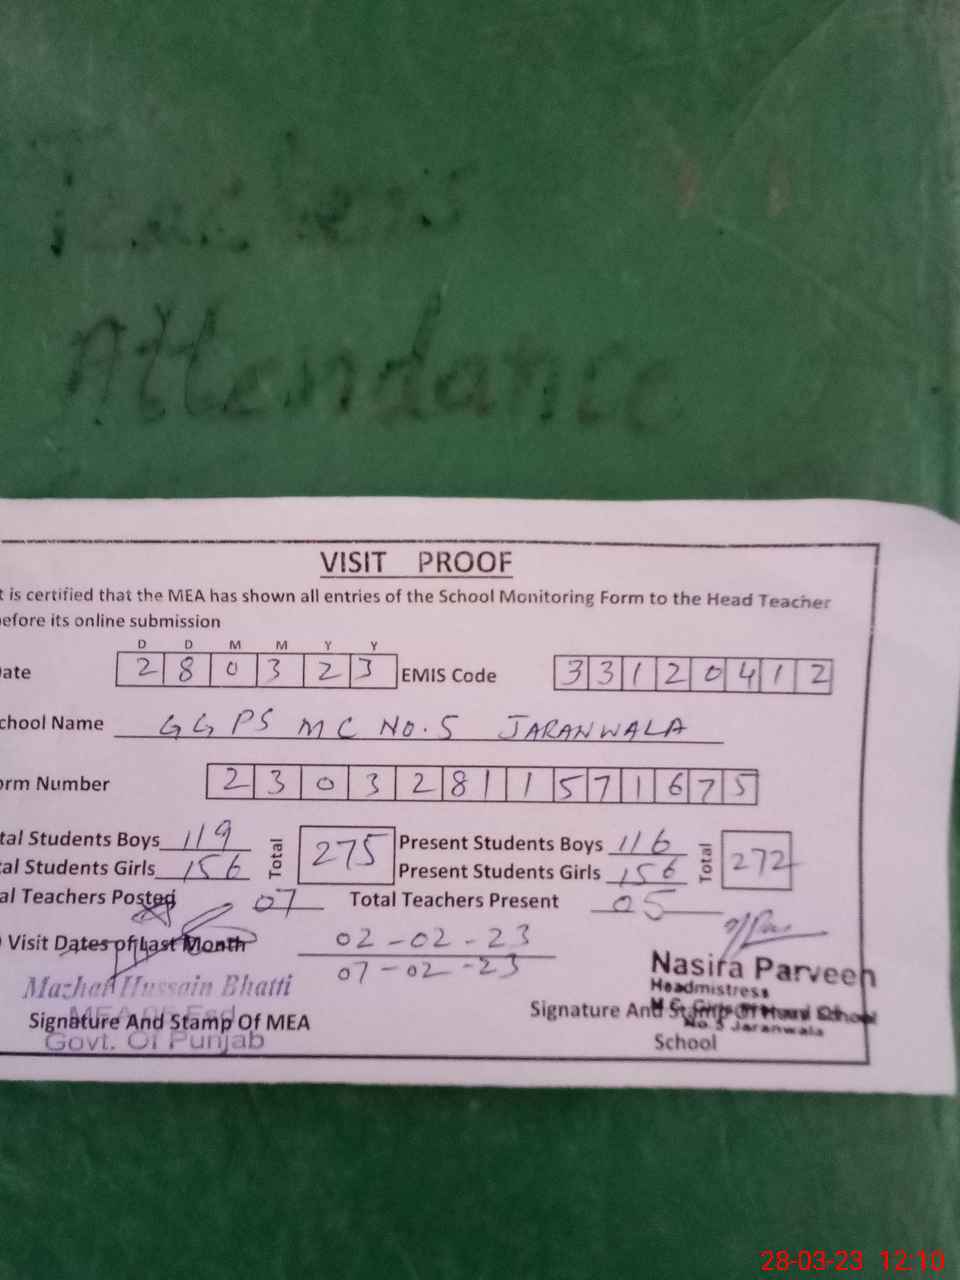 Teachers
Attendance
VISIT PROOF
t is certified that the MEA has shown all entries of the School Monitoring Form to the Head Teacher
efore its online submission
D D M M Y Y
ate 2 8 0 3 2 3 EMIS Code 3 3 1 2 0 4 1 2
chool Name GGPS MC NO.5 JARANWALA
orm Number 2 3 0 3 2 8 1 1 5 7 1 6 7 5
tal Students Boys 119 Total 275 Present Students Boys 116 Total 272
tal Students Girls 156 Present Students Girls 156
al Teachers Posted 07 Total Teachers Present 05
Visit Dates of Last Month 02-02-23
07-02-23
Mazhar Hussain Bhatti
Signature And Stamp Of MEA
Govt. Of Punjab
Nasira Parveen
Headmistress
Signature And Stamp Of
No.5 Jaranwala
School
28-03-23 12:10